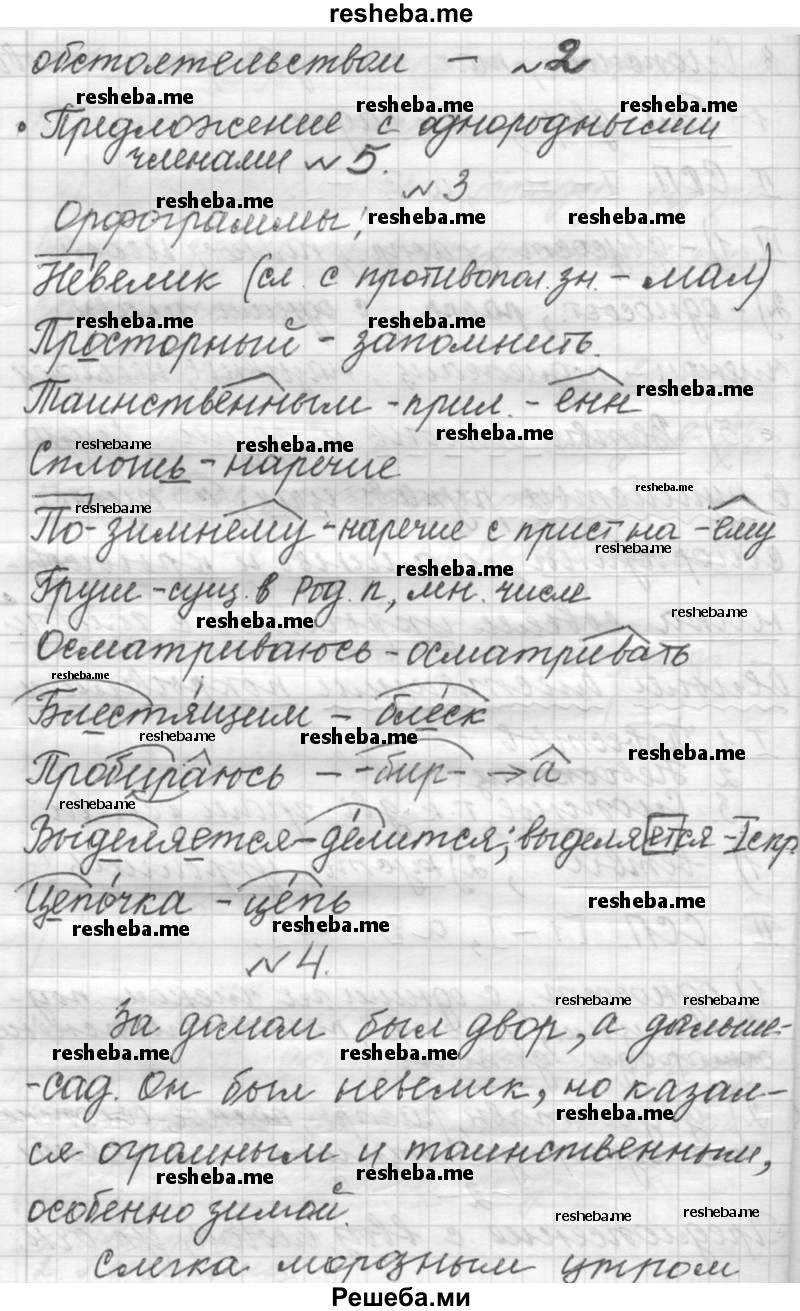 resheba.me
обстоятельством – №2
resheba.me resheba.me resheba.me
• Предложение с однородными
членами №5.
resheba.me
№3
Орфограммы: resheba.me resheba.me
Невелик (сл. с противопол. зн. – мал)
resheba.me resheba.me
Просторный – запомнить.
Таинственным – прил. – енн resheba.me
resheba.me resheba.me resheba.me
Сплошь – наречие
resheba.me resheba.me
По-зимнему – наречие с прист на – ему
resheba.me resheba.me
Груш – сущ. в Род. п, мн. числе
resheba.me resheba.me
Осматриваюсь – осматривать
resheba.me
Блестящим – блеск
resheba.me resheba.me resheba.me
Пробираюсь – -бир- → а
resheba.me
Выделяется – делится; выделяется – I спр.
Цепочка – цепь resheba.me
resheba.me resheba.me
№4.
resheba.me resheba.me
За домом был двор, а дальше-
resheba.me resheba.me
-сад. Он был невелик, но казал-
resheba.me
ся огромным и таинственным,
resheba.me resheba.me
особенно зимой.
resheba.me resheba.me
Слегка морозным утром
Решеба.ми